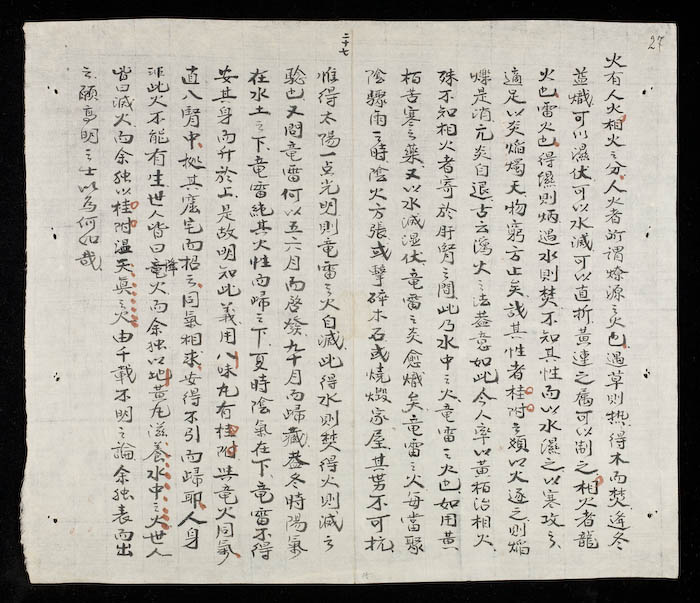 27
二十七
火有人火相火之分人火者所謂燎源之火也遇草則热得木而焚逢冬
益熾可以濕伏可以水滅可以直折黃連之屬可以制之相火者龍
火也雷火也得濕則炳遇水則焚不知其性而以水濕之以寒攻之
適足以炎焰燭天物窮方止矣识其性者桂附之類以火逐之則焰
爍是消亢炎自退古云瀉火之法蓋意如此今人率以黃栢治相火
殊不知相火者寄於肝腎之間此乃水中之火竜雷之火也如用黄
栢苦寒之藥又以水滅湿伏竜雷之炎愈熾矣竜雷之火每當聚
陰驟雨之時陰火方張或擊碎木石或燒燬家屋其势不可抗
惟得太陽一点光明則竜雷之火自滅此得水則焚得火則滅之
驗也又問竜雷何以五六月而啓發九十月而歸藏蓋冬時陽氣
在水土之下竜雷純其火性而歸之下夏時陰氣在下竜雷不得
安其身而升於上是故明知此義用八味丸有桂附與竜火同氣
直八腎中拠其窟宅而招之同氣相求安得不引而歸耶人身
非此火不能有生世人皆曰降竜火而余独以地黃丸滋養水中之火世人
皆曰滅火而余独以桂附温天真之火由千載不明之論余独表而出
之願高明之士以為何如哉